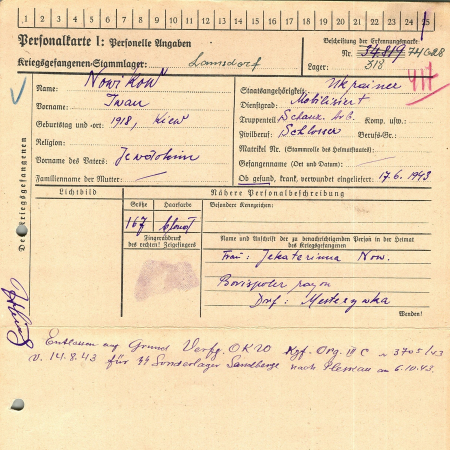 1 2 3 4 5 6 7 8 9 10 11 12 13 14 15 16 17 18 19 20 21 22 23 24 25
Personalkarte I: Personelle Angaben
Kriegsgefangenen-Stammlager: Lamsdorf
Beschriftung der Erkennungsmarke
Nr. 34819
Lager: 318
Des Kriegsgefangenen
Name: Nowikow
Vorname: Iwan
Geburtstag und -ort: 1918, Kiew
Religion:
Vorname des Vaters: Jewdokim
Familienname der Mutter:
Staatsangehörigkeit: Ukrainer
Dienstgrad: Mobilisiert
Truppenteil: Schanz Arb. Komp. usw.:
Zivilberuf: Schlosser Berufs-Gr.:
Matrikel Nr. (Stammrolle des Heimatstaates):
Gefangennahme (Ort und Datum):
Ob gesund, krank, verwundet eingeliefert: 17.6.1943
Lichtbild
Nähere Personalbeschreibung
Größe Haarfarbe
167 blond
Besondere Kennzeichen:
Fingerabdruck
des rechten! Zeigefingers
Name und Anschrift der zu benachrichtigenden Person in der Heimat
des Kriegsgefangenen
Frau: Jekaterinna Now.
Borispoler rayon
Dorf:
Wenden!
Entlassen auf Grund Verfg. OKW Kgf. Org. III C 3705/43
v. 14.8.43 für SS Sonderlager nach am 6.10.43.